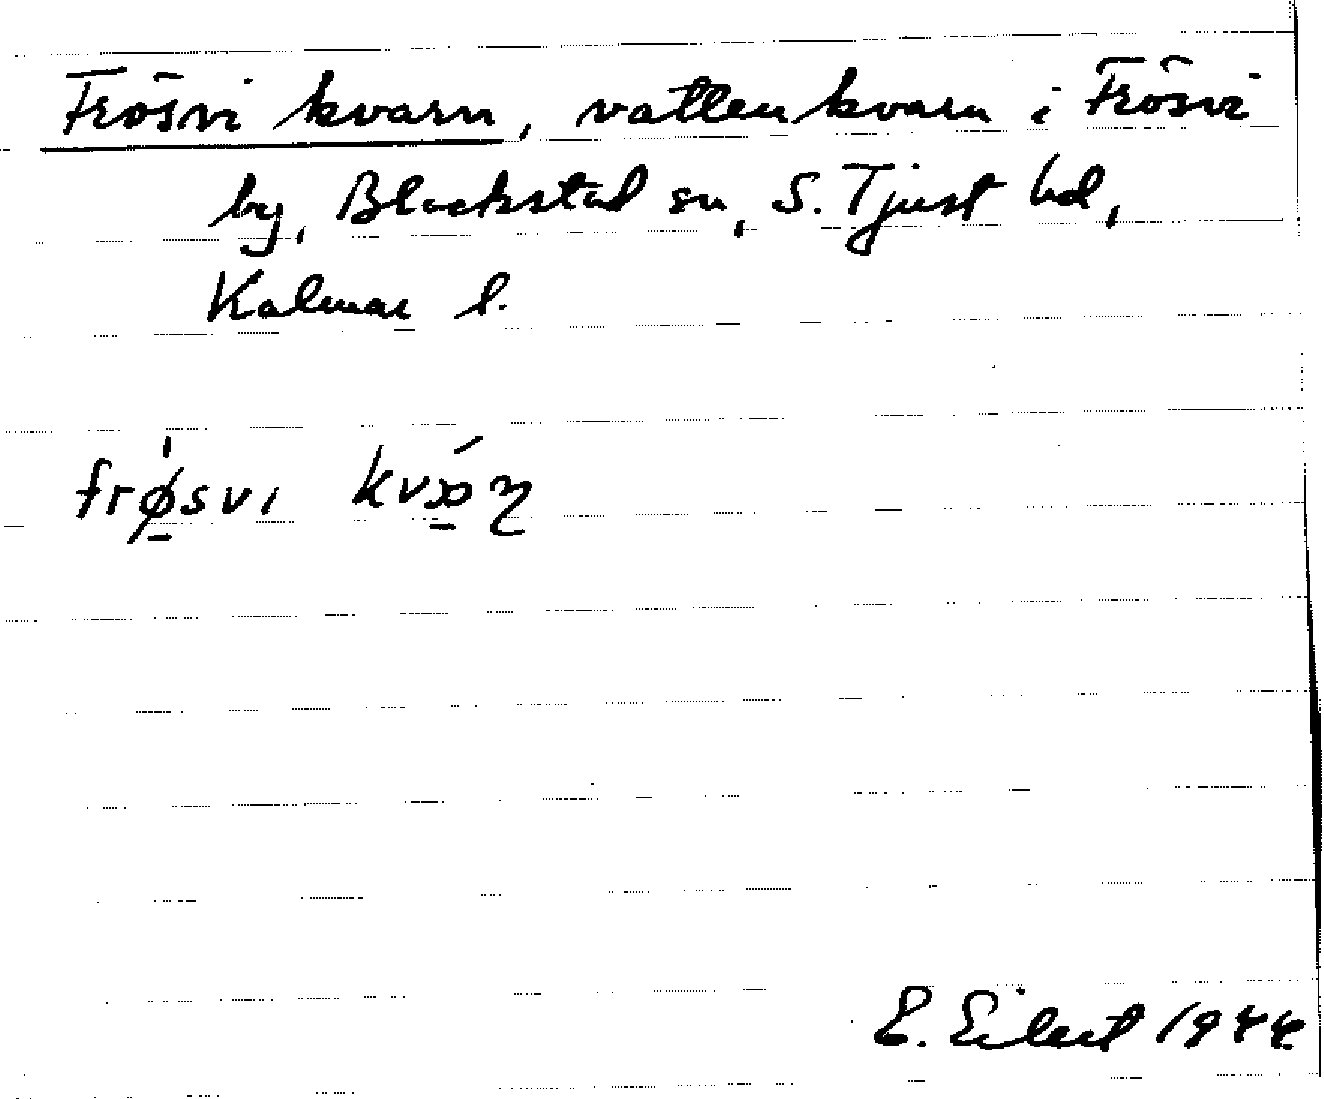 Frösvi kvarn, vattenkvarn i Frösvi
by, Blackstad sn, S. Tjust hd,
Kalmar l.
frǿ̱svi
E. Eilert 1944